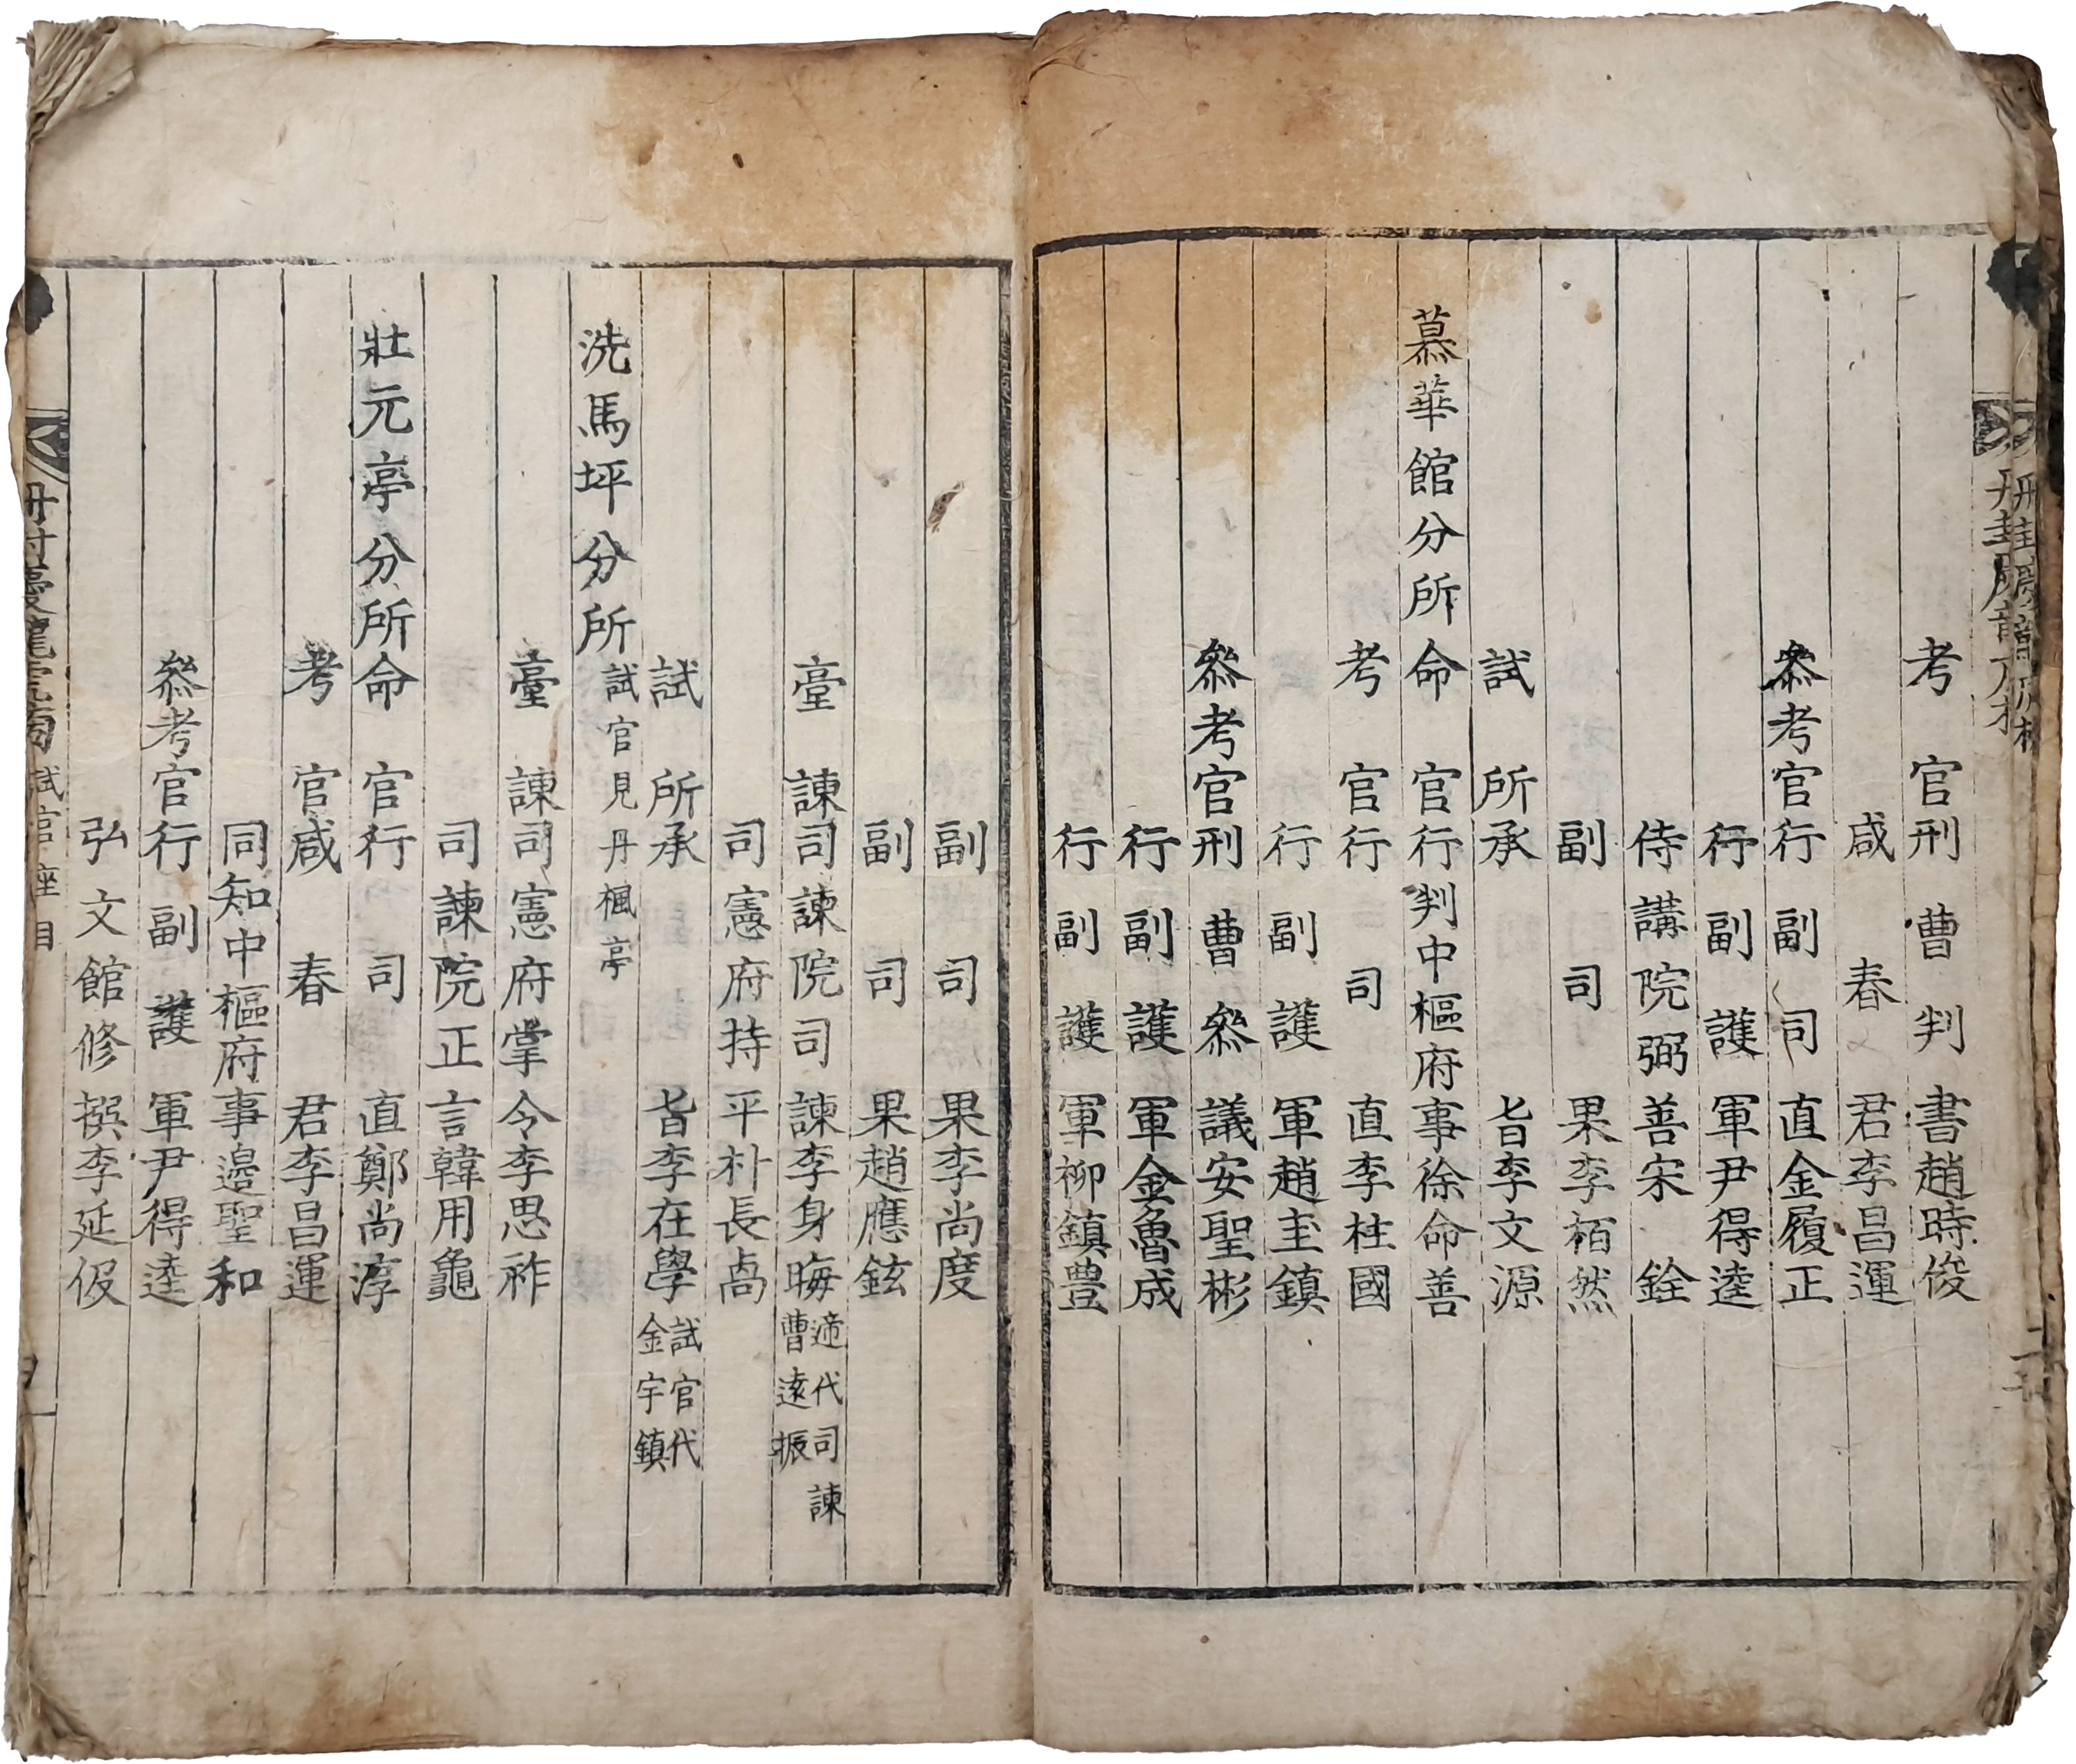 考官刑曹判書趙時俊
咸春君李昌運
叅考官行副司直金履正
行副護軍尹得逵
侍講院弼善宋銓
副司果李栢然
試所承旨李文源
慕華館分所命官行判中樞府事徐命善
考官行司直李柱國
行副護軍趙圭鎮
叅考官刑曹叅議安聖彬
行副護軍金魯成
行副護軍柳鎮豊
副司果李尚度
副司果趙應鉉
臺諫司諫院司諫李身晦 遆代司諫
曹遠振
司憲府持平朴長卨
試所承旨李在學 試官代
金宇鎮
洗馬坪分所 試官見丹楓亭
臺諫司憲府掌令李思祚
司諫院正言韓用龜
壯元亭分所命官行司直鄭尚淳
考官咸春君李昌運
同知中樞府事邊聖和
叅考官行副護軍尹得逵
弘文館修撰李延伋
試官座目